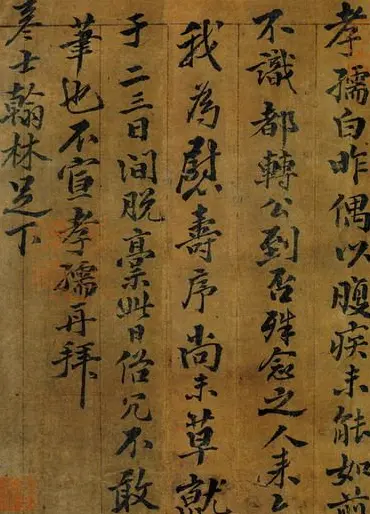 孝孺白昨偶以腹疾未能如前
不識都轉公到否殊念之人来
我為慰壽序尚未草就
于二三日间脱稾此日俗冗不敢
筆也不宣孝孺再拜
彦士翰林足下